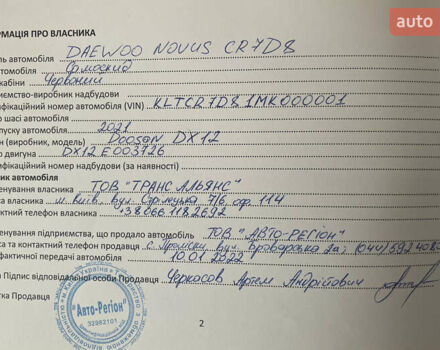 auto
РМАЦІЯ ПРО ВЛАСНИКА
ль автомобіля DAEWOO NOVUS CR7D8
втомобіля Самоскид
кабіни Червоний
иємство-виробник надбудови
ифікаційний номер автомобіля (VIN) KLTCR7D81MK000001
р шасі автомобіля
пуску автомобіля 2021
н (виробник, модель) DOOSAN DX12
р двигуна DX12E003726
ифікаційний номер надбудови (за наявності)
ник автомобіля
енування власника ТОВ "ТРАНС АЛЬЯНС"
са власника м. Київ, вул. 7/6, оф. 114
актний телефон власника +38066 1182692
енування підприємства, що продало автомобіль ТОВ "АВТО-РЕГІОН"
са та контактний телефон продавця вул. Броварська 2а; (044)
фактичної передачі автомобіля 10.01.2022
Підпис відповідальної особи Продавця Черкасов Артем Андрійович
тка Продавця
"Авто-Регіон"
32982101
2